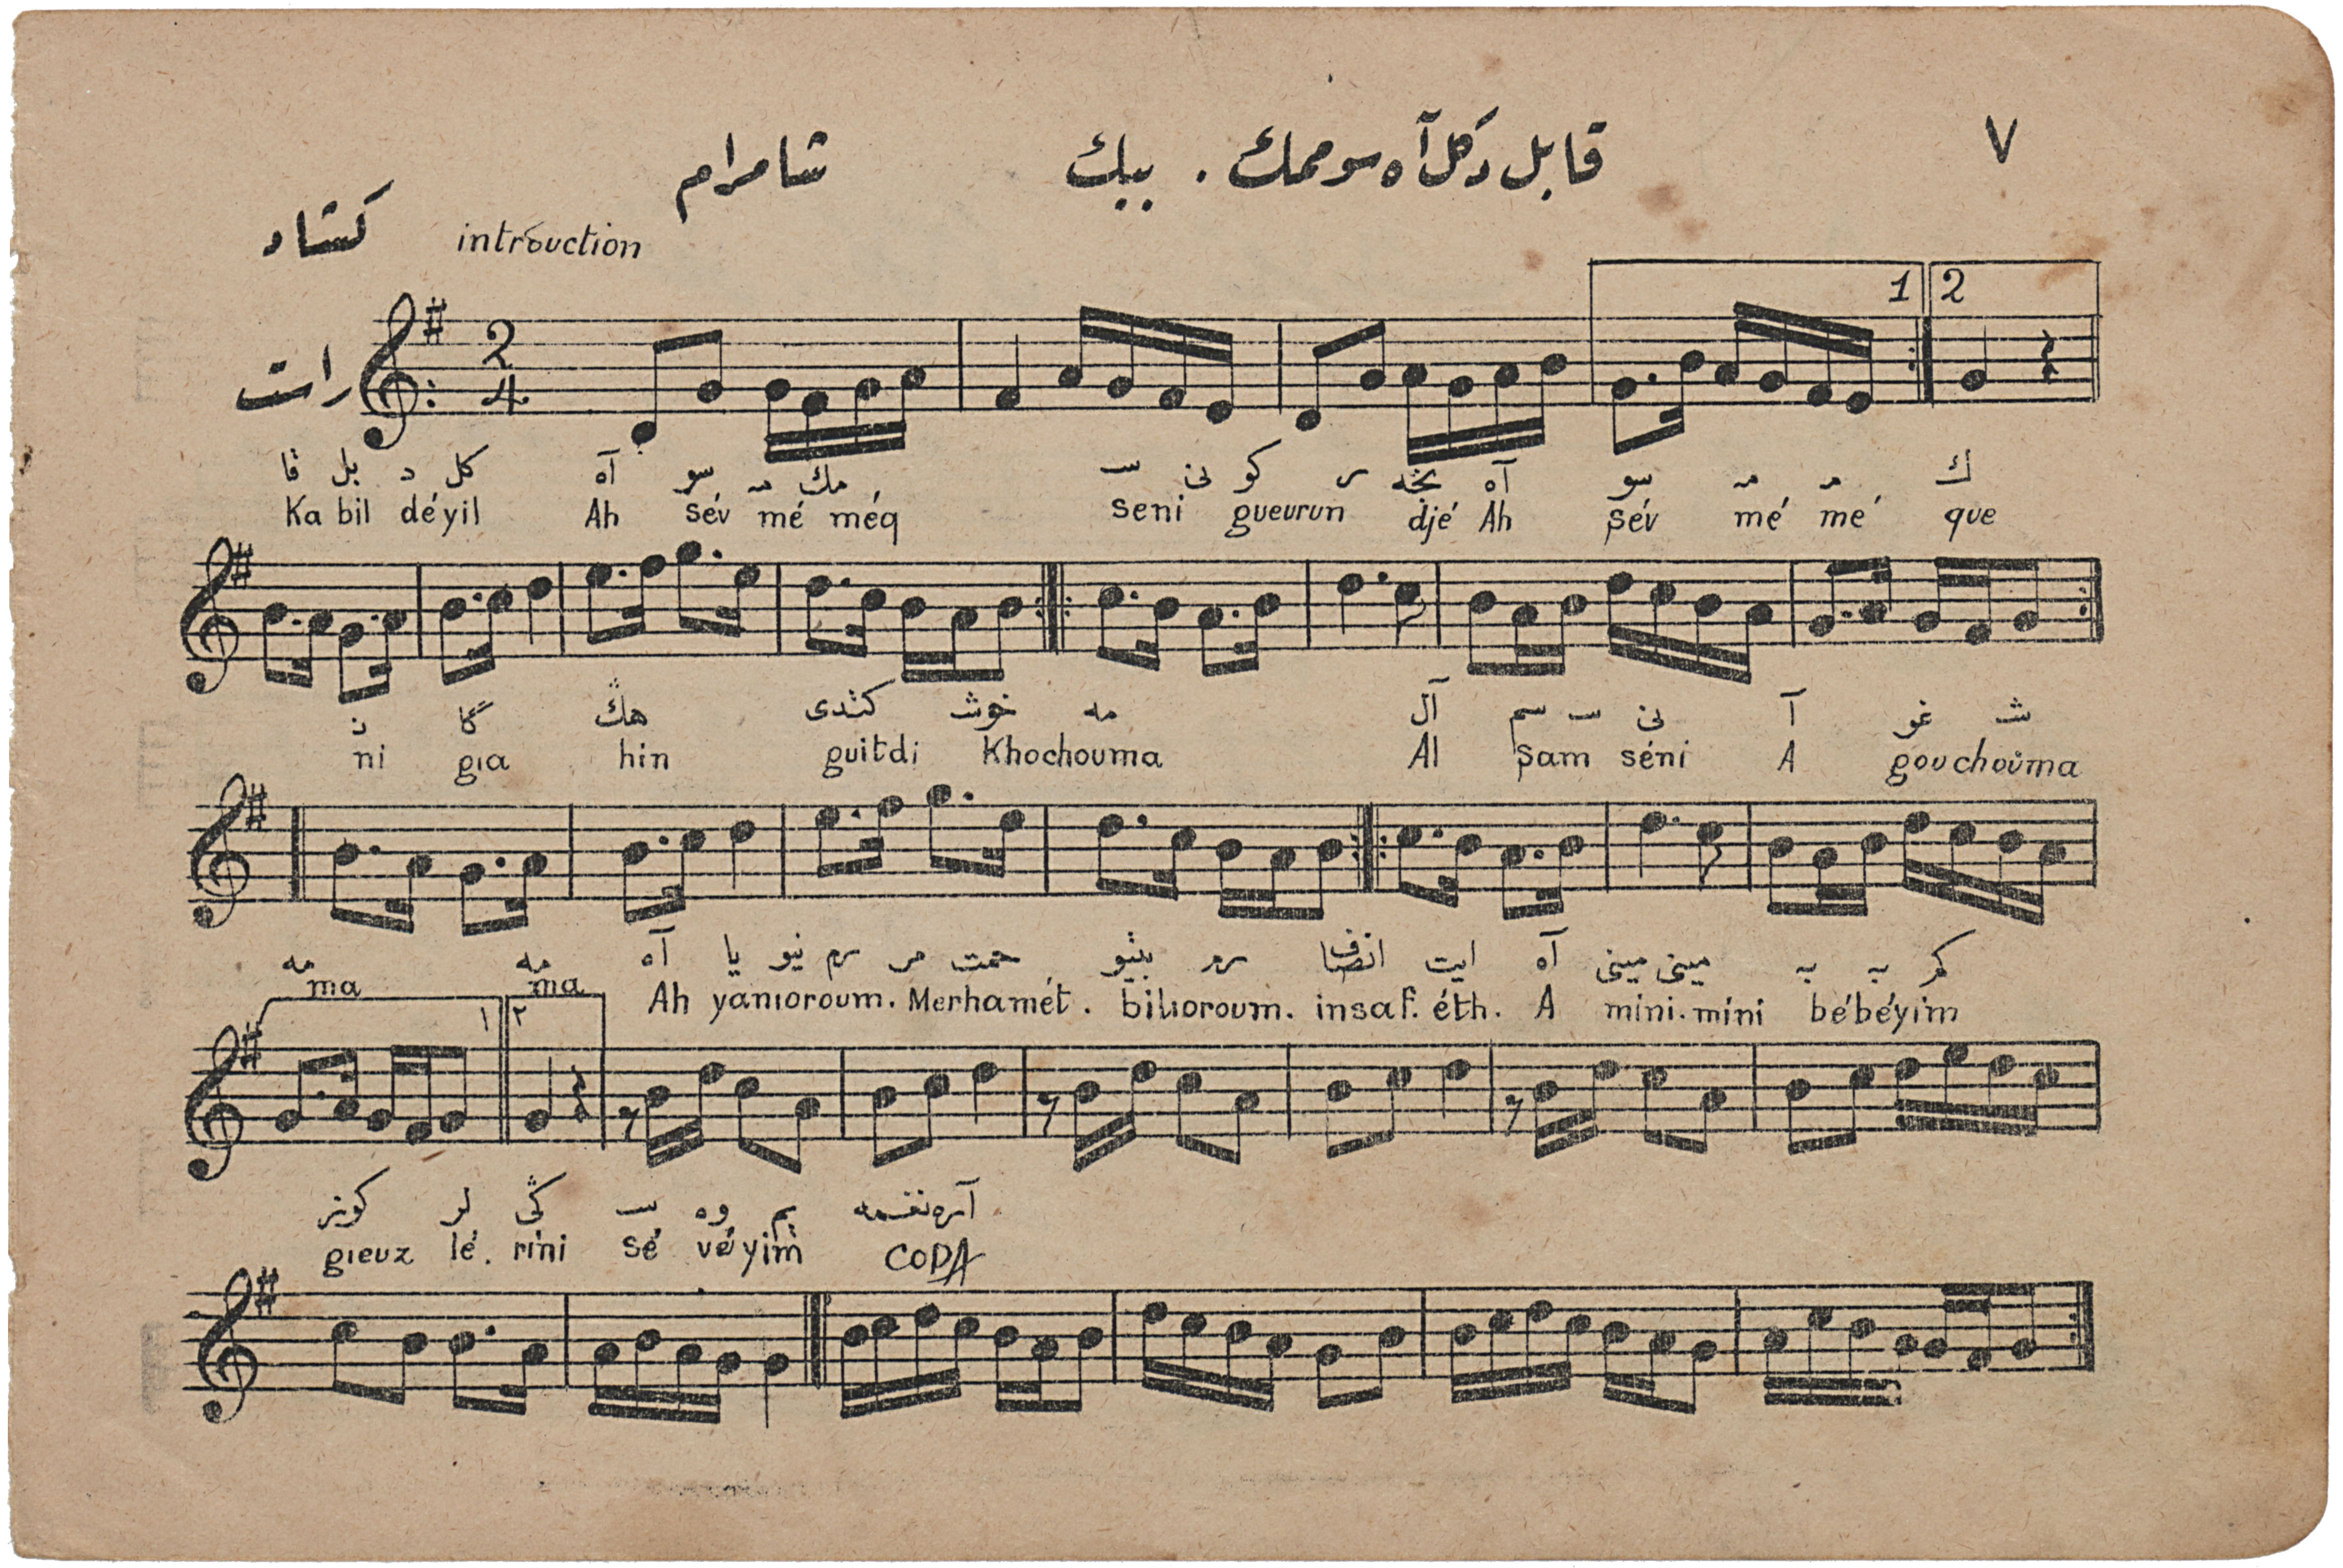 ٧
قابل دكل آه سوممك . ببك شامرام
كشاد introuction
1 2
راست 2 4
قا بل د كل آه سو مـ مك سـ نى كو ر نجه آه سو مـ مـ ك
Ka bil déyil Ah sév mé méq seni gueurun djé Ah sév mé mé que
نـ گا هڭ كتدى خوش مه آل سم سـ نى آ غو شـ
ni gıa hin guitdi Khochouma Al sam séni A gouchouma
مه مه آه يا نيو رم مر حمت بيليو رم انصاف ايت آه مينى مينى بـ بـ كم
ma ma Ah yanıoroum. Merhamét. bilıoroum. insaf. éth. A mini. mini bébéyim
١ ٢
كوز لر ڭى سـ وه يم آره نغمه
gıeuz lé. rini sé véyim CODA